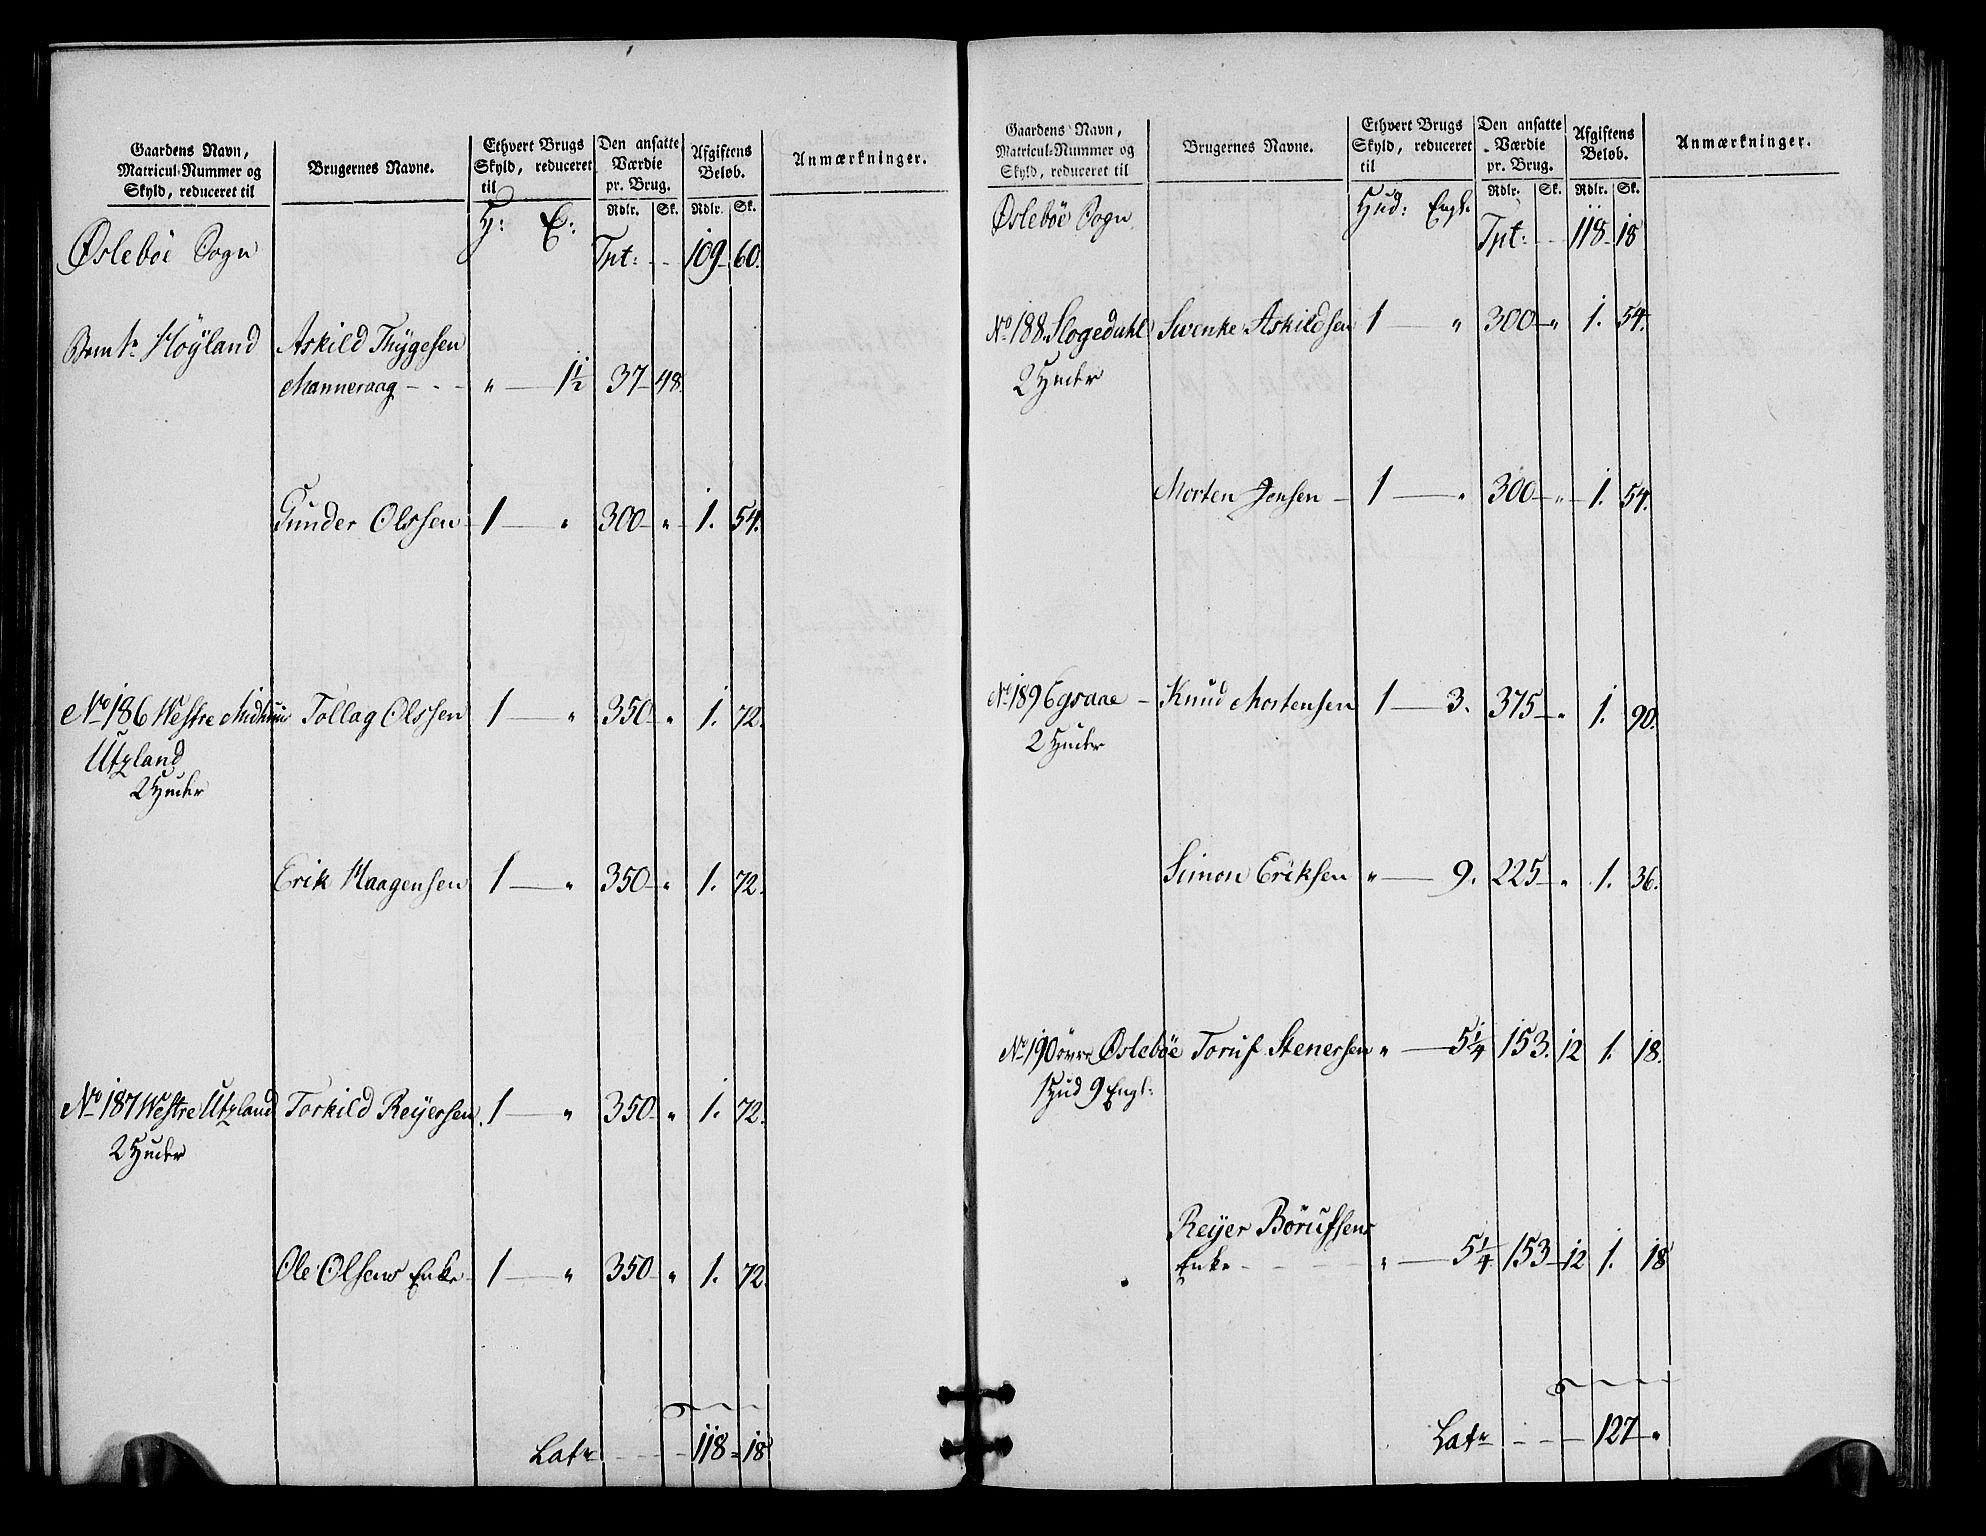 Gaardens Navn, Matricul-Nummer og Skyld, reduceret til | Brugernes Navne. | Ethvert Brugs Skyld, reduceret til | Den ansatte Værdie pr. Brug. | Afgiftens Beløb. | Anmærkninger.
H: E: | Rdlr. Sk. | Rdlr. Sk.
Øslebøe Sogn Tpt: - - 109 60.
Høyland Askild Thygesen
Manneraag - - - " — 1½ 37 — 48.
Gunder Olssen 1 — " 300 — " 1. 54.
No 186 Westre Tollag Olssen 1 — " 350 — " 1. 72.
Utzland
2 Huder
Erik Haagensen 1 — " 350 — " 1. 72.
No 187 Westre Utzland Torkild Reyersen 1 — " 350 — " 1. 72.
2 Huder
Ole Olsens Enke 1 — " 350 — " 1. 72.
Latr - - - 118 = 18
Gaardens Navn, Matricul-Nummer og Skyld, reduceret til | Brugernes Navne. | Ethvert Brugs Skyld, reduceret til | Den ansatte Værdie pr. Brug. | Afgiftens Beløb. | Anmærkninger.
Hud: Engl: | Rdlr. Sk. | Rdlr. Sk.
Øslebøe Sogn Tpt: - - 118 18
No 188. Slogedahl Swenke Askildsen 1 — " 300 — " 1. 54.
2 Huder
Morten Jensen — 1 — " 300 — " 1. 54.
No 189 Egraae — Knud Mortensen 1 — 3. 375 — " 1. 90.
2 Huder
Simon Eriksen " — 9. 225 — " 1. 36.
No 190 övre Øslebøe Toruf Stenersen " — 5¼ 153. 12 1. 18.
1 Hud 9 Engl:
Reyer Börufsens
Enke - - - " — 5¼ 153 — 12 1. 18
Latr - - - 127 "